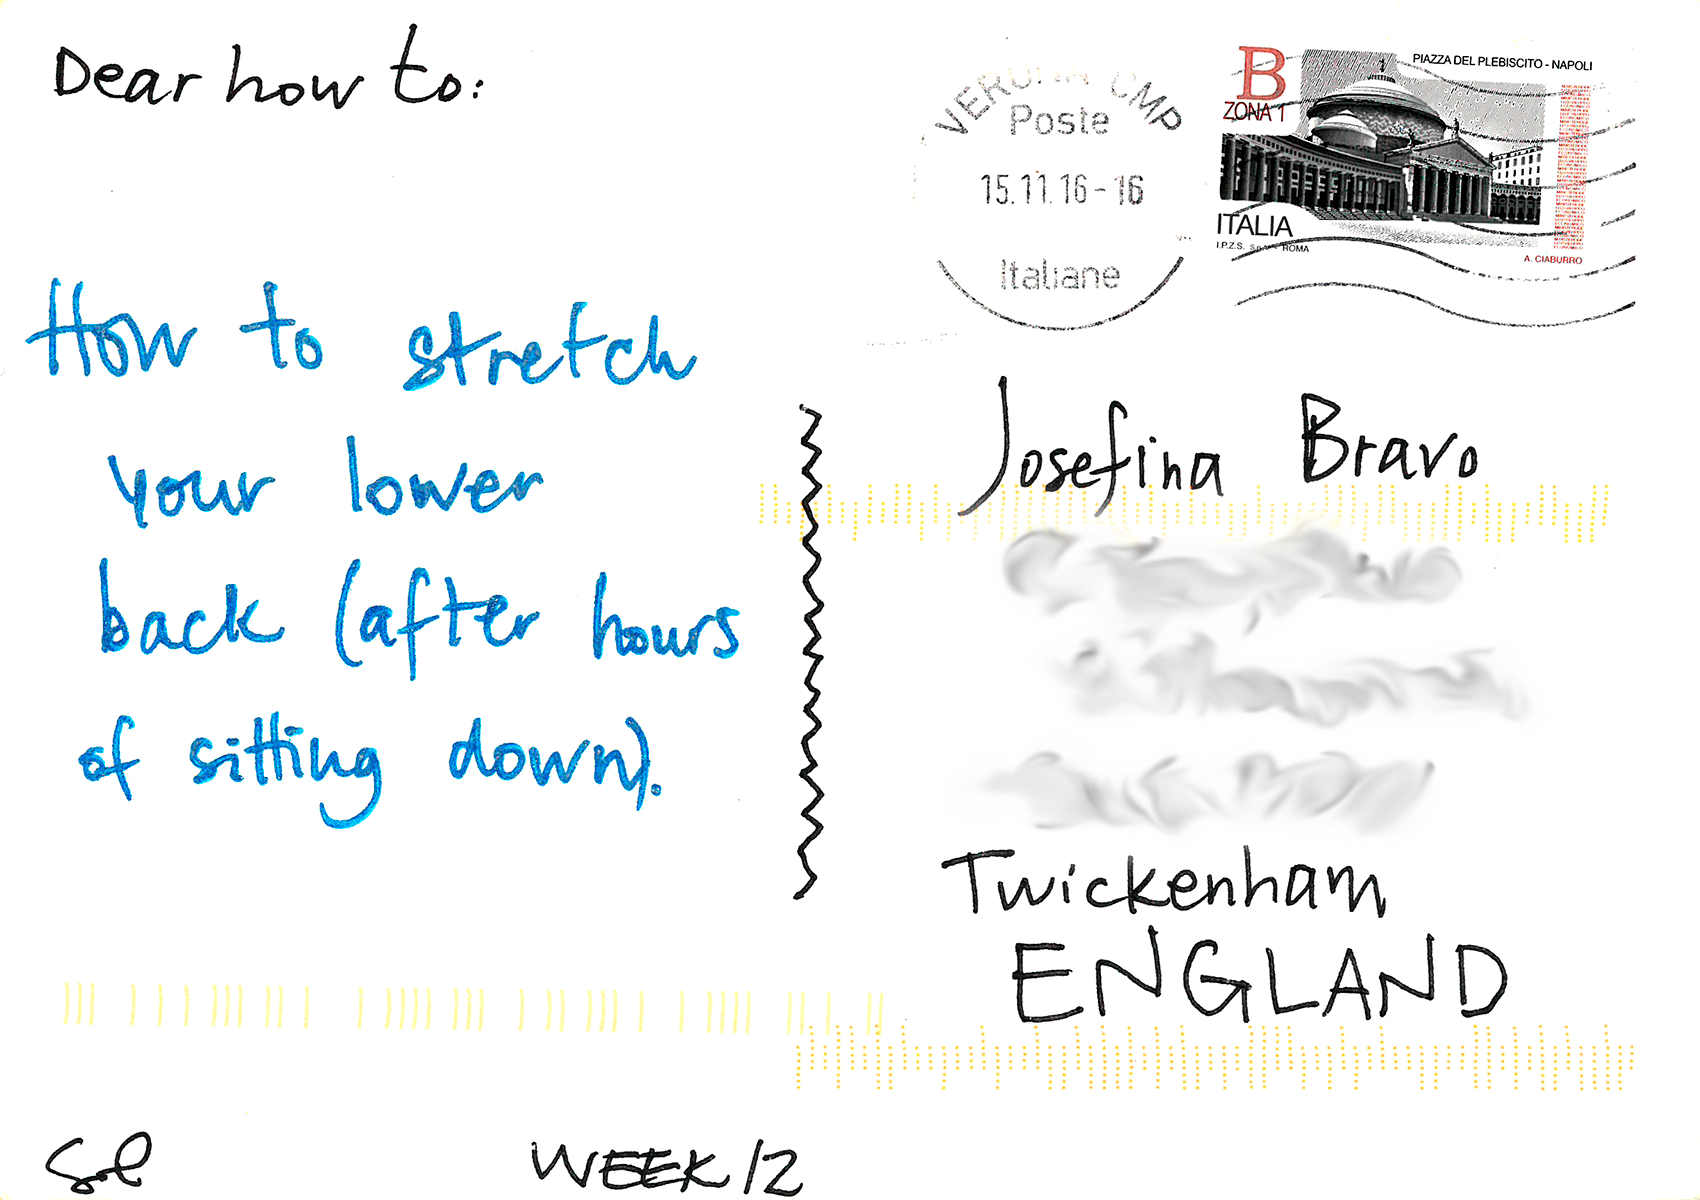 Dear how to:
How to stretch
your lower
back (after hours
of sitting down).
WEEK 12
VERONA CMP
Poste
15.11.16-16
Italiane
B
ZONA 1
PIAZZA DEL PLEBISCITO - NAPOLI
ITALIA
I.P.Z.S. S.p.A. - ROMA
A. CIABURRO
Josefina Bravo
Twickenham
ENGLAND